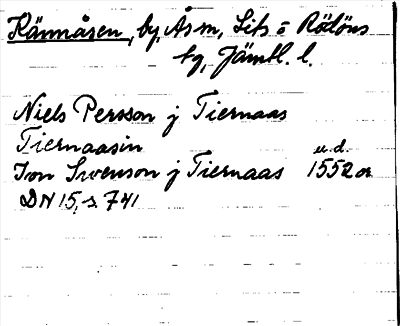 Kännåsen, by, Ås sn, Lits o Rödöns
tg, Jämtl. l.
Niels Persson j Tiernaas
Tiernaasin u.d.
Ion Swenson j Tiernaas 1552 or
DN 15, s. 741